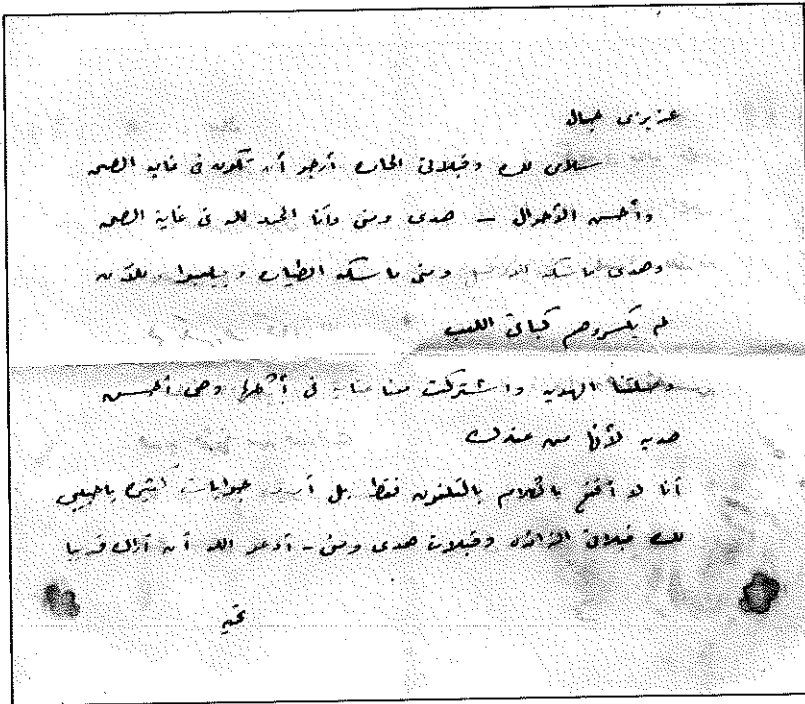 عزيزى جمال
سلامى لك وقبلاتى الحاره أرجو أن تكون فى غايه الصحه
وأحسن الأحوال – هدى ومنى وأنا الحمد لله فى غاية الصحه
وهدى ماسكه ومنى ماسكه الطياره وبيلعبوا وللآن
لم يكسروهم كباقى اللعب
وصلتنا الهديه واشتركت فى أكلها وهى أحسن
هديه لأنها من عندك
أنا لا أقتنع بالكلام بالتلفون فقط بل جوابات كثيره ياحبيبى
لك قبلاتى وقبلات هدى ومنى – أدعو الله أن أراك قريبا
تحيه